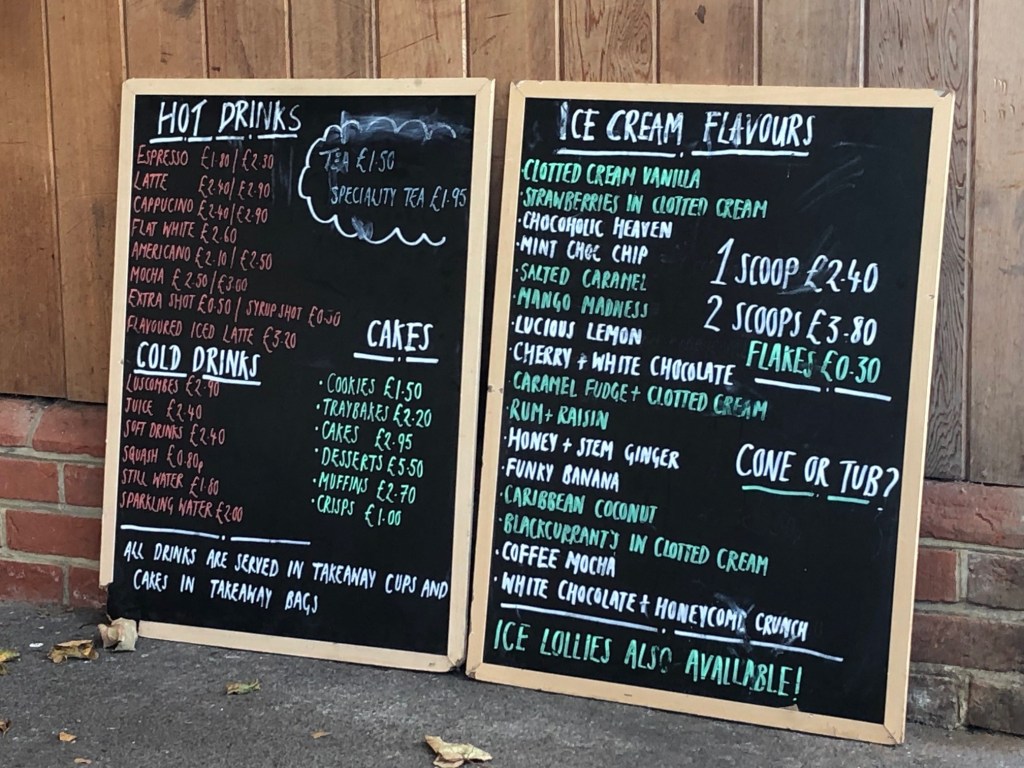 HOT DRINKS
ESPRESSO £1.80/£2.30
LATTE £2.40/£2.90
CAPPUCINO £2.40/£2.90
FLAT WHITE £2.60
AMERICANO £2.10/£2.50
MOCHA £2.50/£3.00
EXTRA SHOT £0.50/SYRUP SHOT £0.50
FLAVOURED ICED LATTE £3.20
TEA £1.50
SPECIALITY TEA £1.95
COLD DRINKS
LUSCOMBES £2.90
JUICE £2.40
SOFT DRINKS £2.40
SQUASH £0.80p
STILL WATER £1.80
SPARKLING WATER £2.00
CAKES
· COOKIES £1.50
· TRAYBAKES £2.20
· CAKES £2.95
· DESSERTS £5.50
· MUFFINS £2.70
· CRISPS £1.00
ALL DRINKS ARE SERVED IN TAKEAWAY CUPS AND
CAKES IN TAKEAWAY BAGS
ICE CREAM FLAVOURS
· CLOTTED CREAM VANILLA
· STRAWBERRIES IN CLOTTED CREAM
· CHOCOHOLIC HEAVEN
· MINT CHOC CHIP
· SALTED CARAMEL
· MANGO MADNESS
· LUCIOUS LEMON
· CHERRY + WHITE CHOCOLATE
· CARAMEL FUDGE + CLOTTED CREAM
· RUM + RAISIN
· HONEY + STEM GINGER
· FUNKY BANANA
· CARIBBEAN COCONUT
· BLACKCURRANTS IN CLOTTED CREAM
· COFFEE MOCHA
· WHITE CHOCOLATE + HONEYCOMB CRUNCH
1 SCOOP £2.40
2 SCOOPS £3.80
FLAKES £0.30
CONE OR TUB?
ICE LOLLIES ALSO AVAILABLE!